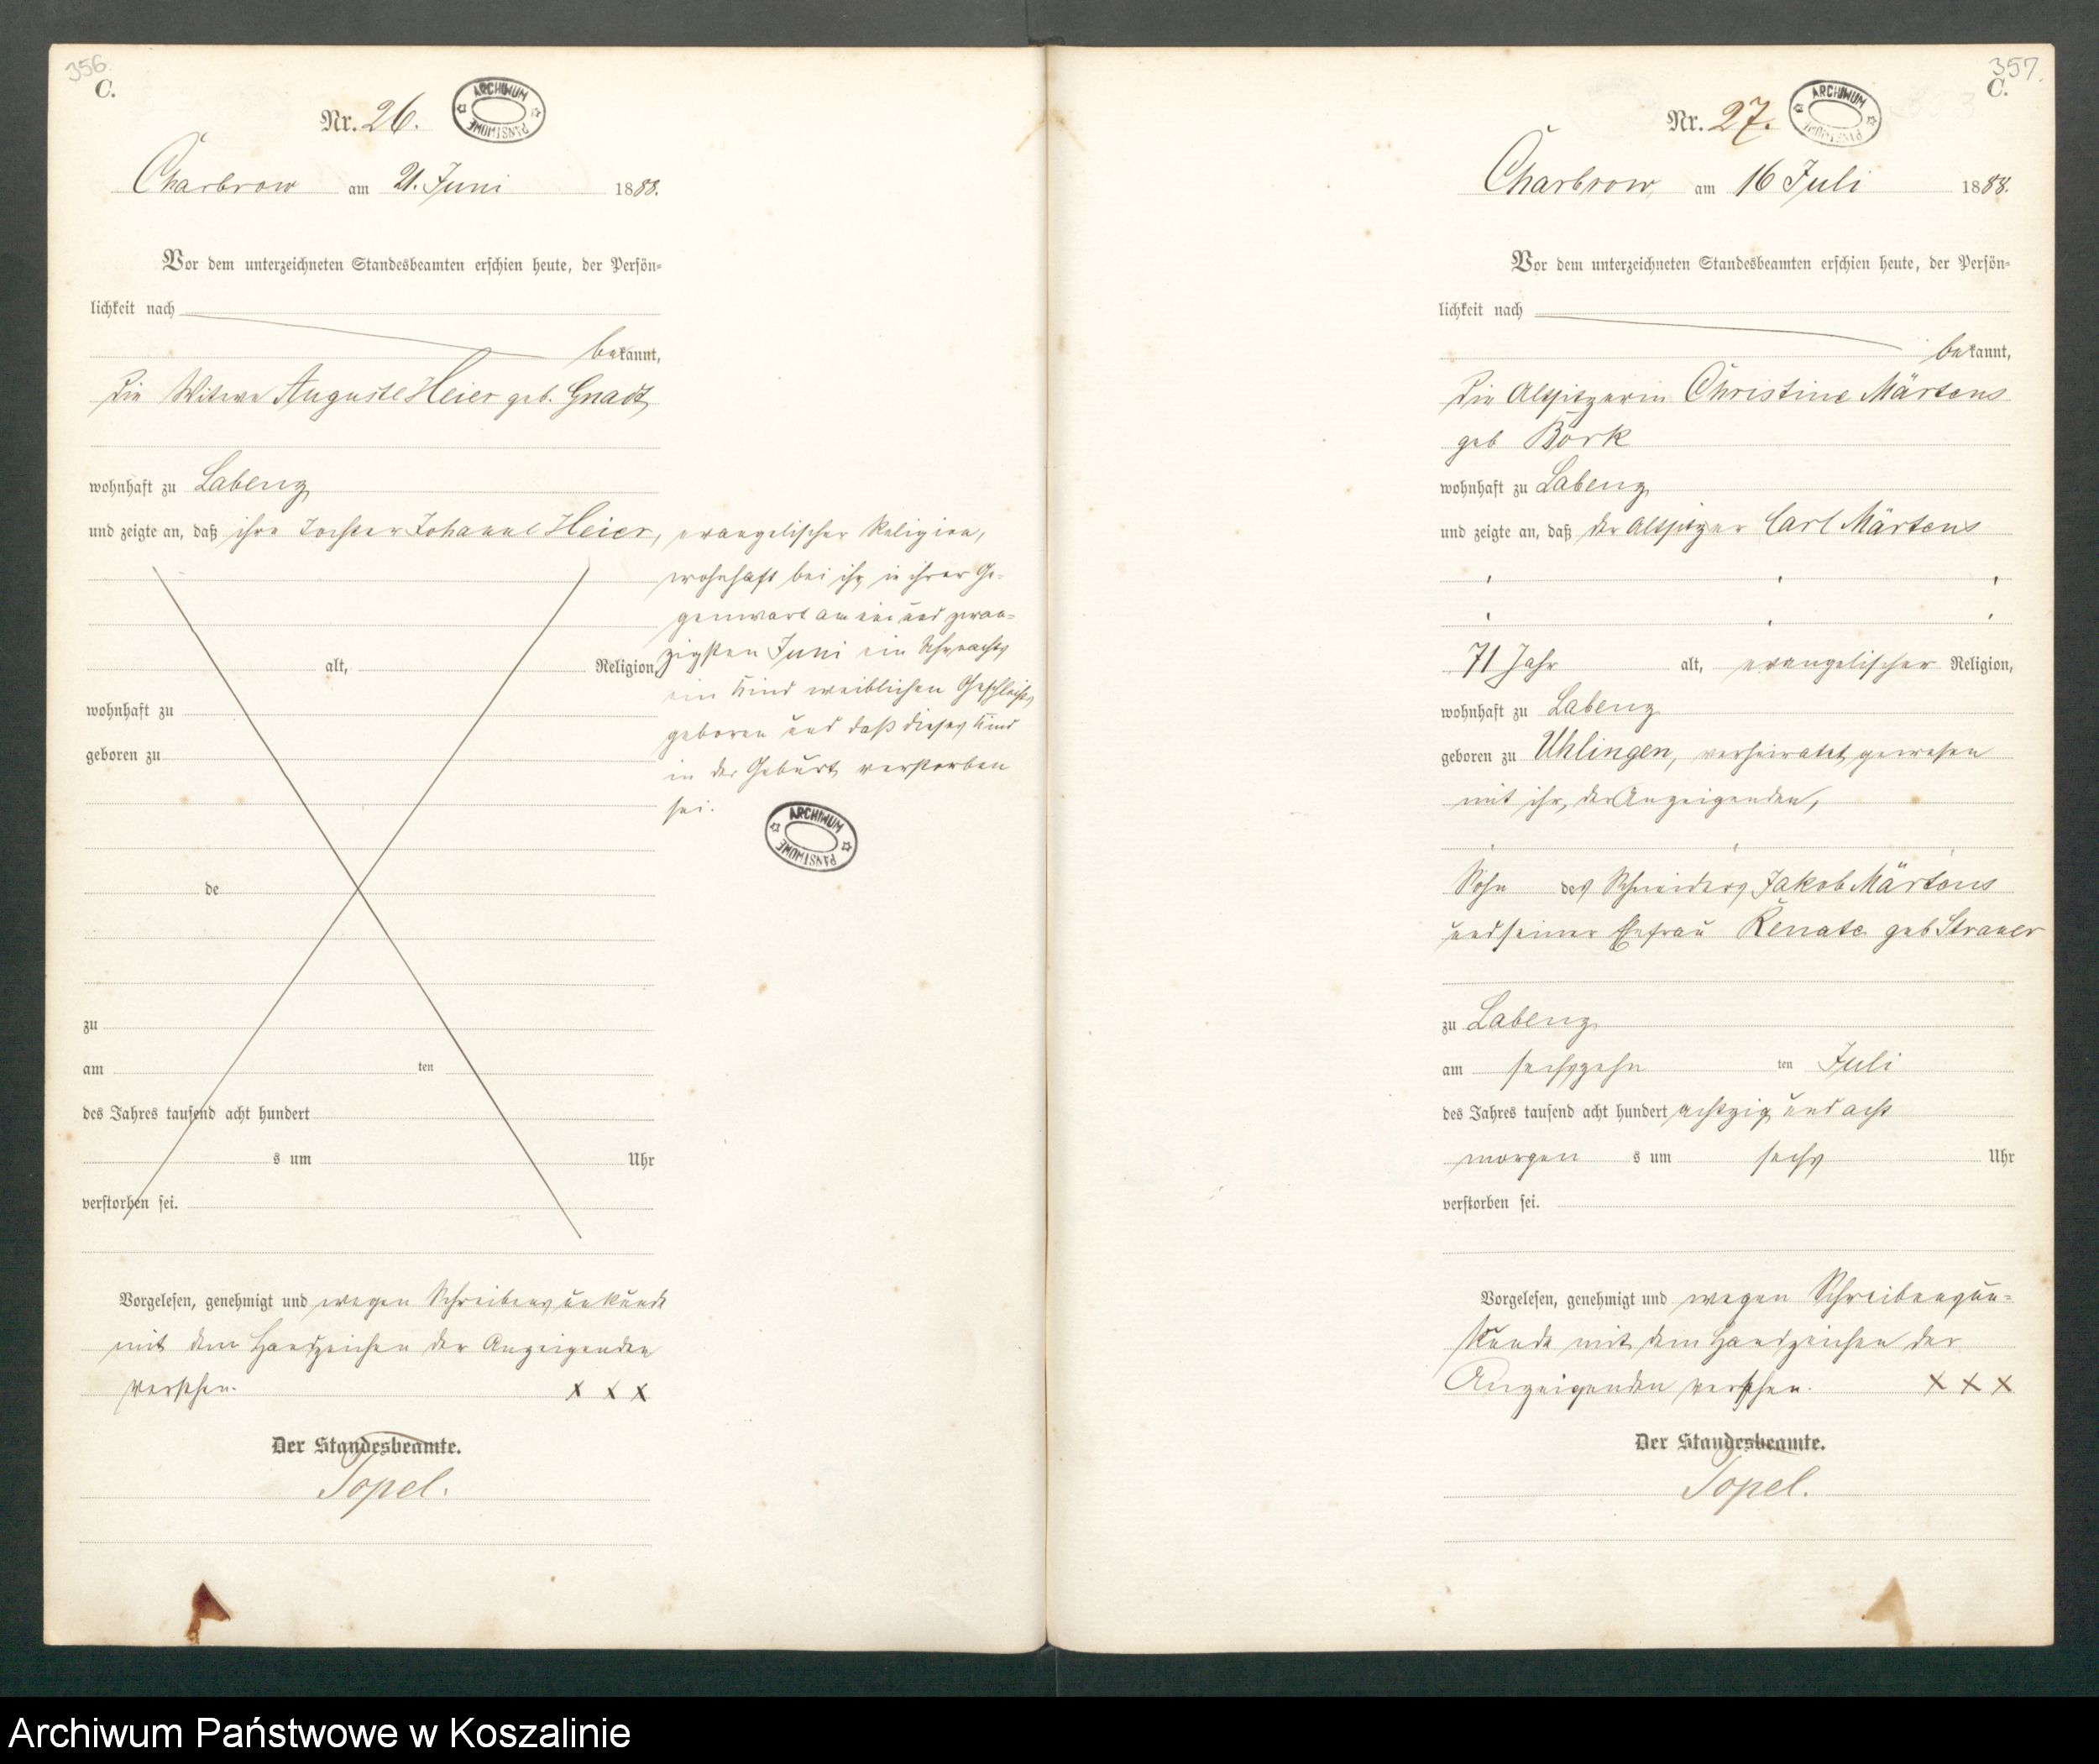 356.
C.
Nr. 26.
ARCHIWUM PAŃSTWOWE
Charbrow am 21. Juni 1888.
Vor dem unterzeichneten Standesbeamten erschien heute, der Persön-
lichkeit nach
bekannt,
die Witwe Auguste Heier geb. Gnadt
wohnhaft zu Labenz
und zeigte an, daß ihre Tochter Johanne Heier, evangelischer Religion,
wohnhaft bei ihr, in ihrer Ge-
genwart am ein und zwan-
zigsten Juni
alt, Religion,
ein Kind weiblichen Geschlechts
wohnhaft zu
geboren und daß dieses Kind
geboren zu
in der Geburt verstorben
sei.
ARCHIWUM PAŃSTWOWE
de
zu
am ten
des Jahres tausend acht hundert
s um Uhr
verstorben sei.
Vorgelesen, genehmigt und wegen Schreibensunkunde
mit dem Handzeichen der Anzeigenden
versehen. X X X
Der Standesbeamte.
Topel.
357.
C.
Nr. 27.
ARCHIWUM PAŃSTWOWE
Charbrow, am 16 Juli 1888.
Vor dem unterzeichneten Standesbeamten erschien heute, der Persön-
lichkeit nach
bekannt,
die Altsitzerin Christine Märtens
geb Bork
wohnhaft zu Labenz
und zeigte an, daß der Altsitzer Carl Märtens
71 Jahr alt, evangelischer Religion,
wohnhaft zu Labenz
geboren zu Uhlingen, verheiratet gewesen
mit ihr, der Anzeigenden,
Sohn des Schneiders Jakob Märtens
und seiner Ehefrau Renate geb
zu Labenz
am sechszehn ten Juli
des Jahres tausend acht hundert achtzig und acht
morgen s um sechs Uhr
verstorben sei.
Vorgelesen, genehmigt und wegen Schreibensun-
kunde mit dem Handzeichen der
Anzeigenden versehen. X X X
Der Standesbeamte.
Topel.
Archiwum Państwowe w Koszalinie